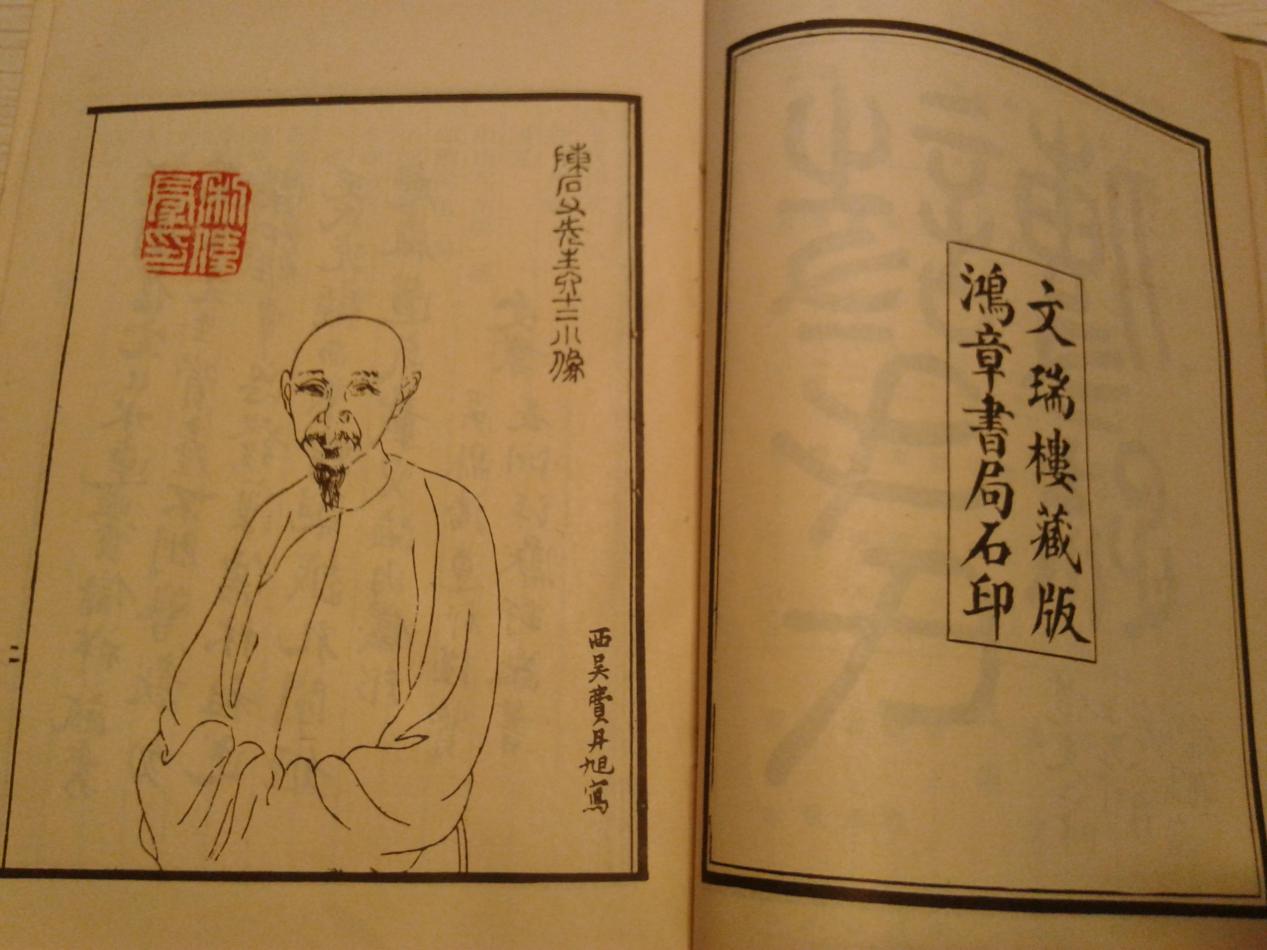 文瑞樓藏版
鴻章書局石印
陳石父先生六十二小像
西吳費丹旭寫